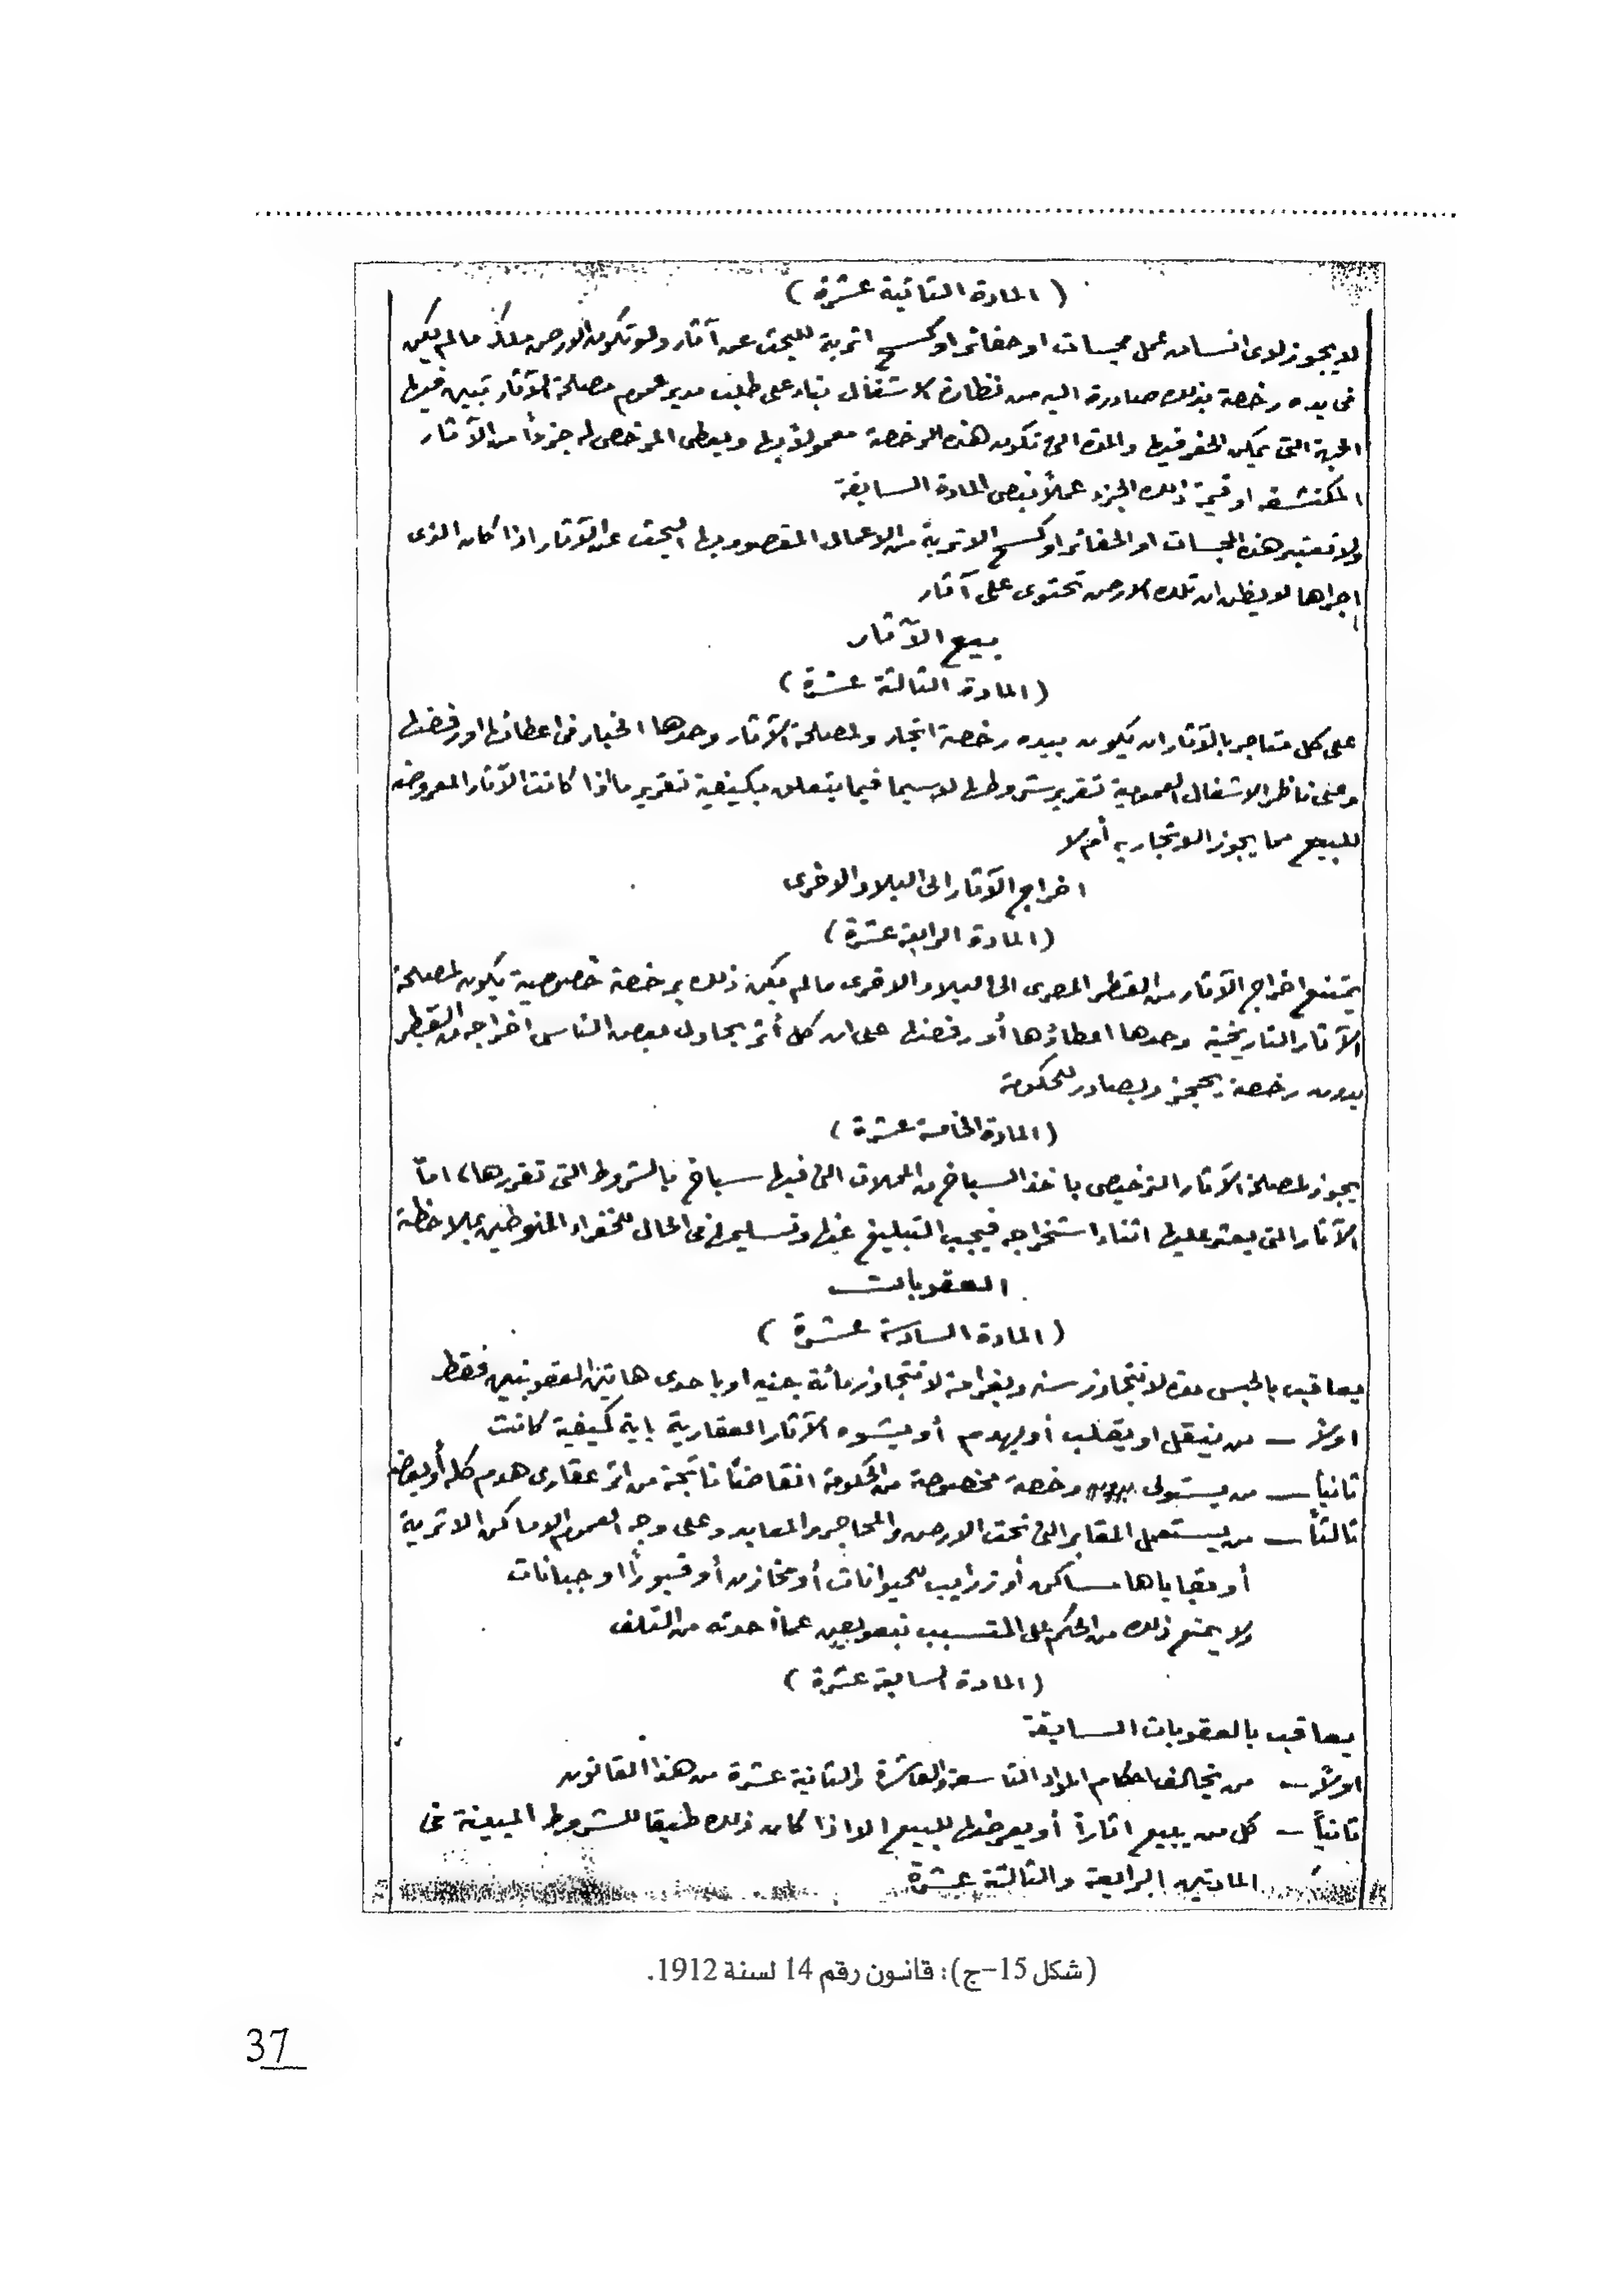 (المادة الثانية عشرة)
لا يجوز لاى انسان عمل مجسات او حفائر او كسح اتربة للبحث عن آثار ولو تكون الارض ملكه ما لم يكن
فى يده رخصة بذلك صادرة اليه من نظارة الاشغال بناء على طلب مدير عموم مصلحة الآثار تبين فيها
الجهة التى يمكن الحفر فيها والمدة التى تكون هذه الرخصة معمولاً بها ويعطى المرخص له جزءاً من الآثار
المكتشفه او قيمة ذلك الجزء عملاً بنص المادة السابقة
ولا تعتبر هذه المجسات او الحفائر او كسح الاتربة من الاعمال المقصود بها البحث عن الآثار اذا كان الذى
اجراها لا يظن ان تلك الارض تحتوى على آثار
بيع الآثار
(المادة الثالثة عشرة)
على كل متاجر بالآثار ان يكون بيده رخصة اتجار ولمصلحة الآثار وحدها الخيار فى اعطائها او رفضها
وعلى ناظر الاشغال العمومية تقرير شروطها لاسيما فيما يتعلق بكيفية تقرير ما اذا كانت الآثار المعروضه
للبيع مما يجوز الاتجار به أم لا
اخراج الآثار الى البلاد الاخرى
(المادة الرابعة عشرة)
يمتنع اخراج الآثار من القطر المصرى الى البلاد الاخرى ما لم يكن ذلك برخصة خصوصية يكون لمصلحة
الآثار التاريخية وحدها اعطاؤها أو رفضها على ان كل أثر يحاول بعض الناس اخراجه من القطر
بدون رخصة يحجز ويصادر للحكومة
(المادة الخامسة عشرة)
يجوز لمصلحة الآثار الترخيص باخذ السباخ من المحلات التى فيها سباخ بالشروط التى تقررها، اما
الآثار التى يعثر عليها اثناء استخراجه فيجب التبليغ عنها وتسليمها فى الحال للخفراء المنوطين بملاحظة
العقوبات
(المادة السادسة عشرة)
يعاقب بالحبس مدة لا تتجاوز سنه وبغرامة لا تتجاوز مائة جنيه او باحدى هاتين العقوبتين فقط
اولاً — من ينقل او يقلب أو يهدم أو يشوه الآثار العقارية باية كيفية كانت
ثانياً — من يستولى بدون رخصة مخصوصة من الحكومة انقاضاً ناتجة من اثر عقارى هدم كله أو بعضه
ثالثاً — من يستعمل المقابر التى تحت الارض والمحاجر والمعابد وعلى وجه العموم الاماكن الاثرية
أو بقاياها مساكن أو زرايب للحيوانات أو مخازن أو قبوراً او جبانات
ولا يمنع ذلك من الحكم على المتسبب بتعويض عما احدثه من التلف
(المادة السابعة عشرة)
يعاقب بالعقوبات السابقة
اولاً — من يخالف احكام المواد التاسعة والعاشرة والثانية عشرة من هذا القانون
ثانياً — كل من يبيع اثاراً أو يعرضها للبيع الا اذا كان ذلك طبقا للشروط المبينة فى
المادتين الرابعة والثالثة عشرة
(شكل 15-ج): قانون رقم 14 لسنة 1912.
37